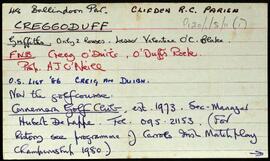 Ballindoon Par. CLIFDEN R.C. PARISH
CREGGODUFF
Griffiths Only 2 houses. Lessor Valentine O'C. Blake
FNB Cregg O'Duite, O'Duff's Rock.
Prof. A.J. O'Neill
O.S. LIST '86 CREIG AN DUIBH.
Now the golf course.
Connemara Golf Club est. 1973. Sec-Manager
Hubert De Lappe. Tel. 095-21153. (For
History see programme:) Carrolls Irish Match play
Championship 1980.)